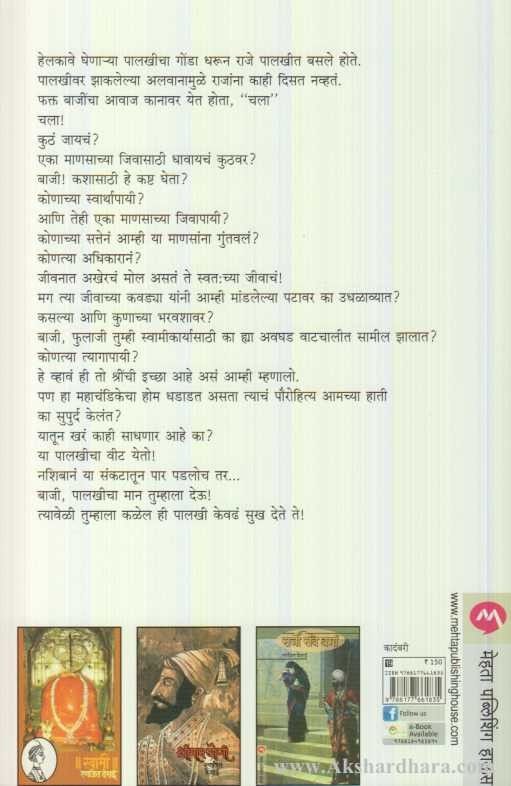 हेलकावे घेणाऱ्या पालखीचा गोंडा धरून राजे पालखीत बसले होते.
पालखीवर झाकलेल्या अलवानामुळे राजांना काही दिसत नव्हतं.
फक्त बाजींचा आवाज कानावर येत होता, ‘‘चला’’
चला!
कुठं जायचं?
एका माणसाच्या जिवासाठी धावायचं कुठवर?
बाजी! कशासाठी हे कष्ट घेता?
कोणाच्या स्वार्थापायी?
आणि तेही एका माणसाच्या जिवापायी?
कोणाच्या सत्तेनं आम्ही या माणसांना गुंतवलं?
कोणत्या अधिकारानं?
जीवनात अखेरचं मोल असतं ते स्वत:च्या जीवाचं!
मग त्या जीवाच्या कवड्या यांनी आम्ही मांडलेल्या पटावर का उधळाव्यात?
कसल्या आणि कुणाच्या भरवशावर?
बाजी, फुलाजी तुम्ही स्वामीकार्यासाठी का ह्या अवघड वाटचालीत सामील झालात?
कोणत्या त्यागापायी?
हे व्हावं ही तो श्रींची इच्छा आहे असं आम्ही म्हणालो.
पण हा महाचंडिकेचा होम धडाडत असता त्याचं पौरोहित्य आमच्या हाती
का सुपुर्द केलंत?
यातून खरं काही साधणार आहे का?
या पालखीचा वीट येतो!
नशिबानं या संकटातून पार पडलोच तर...
बाजी, पालखीचा मान तुम्हाला देऊ!
त्यावेळी तुम्हाला कळेल ही पालखी केवढं सुख देते ते!
॥ स्वामी
रणजित देसाई
श्रीमान योगी
राजा रवि वर्मा
रणजित देसाई
कादंबरी
₹ 150
Follow us
e-Book
Available
www.mehtapublishinghouse.com
मेहता पब्लिशिंग हाऊस
www.Akshardhara.com